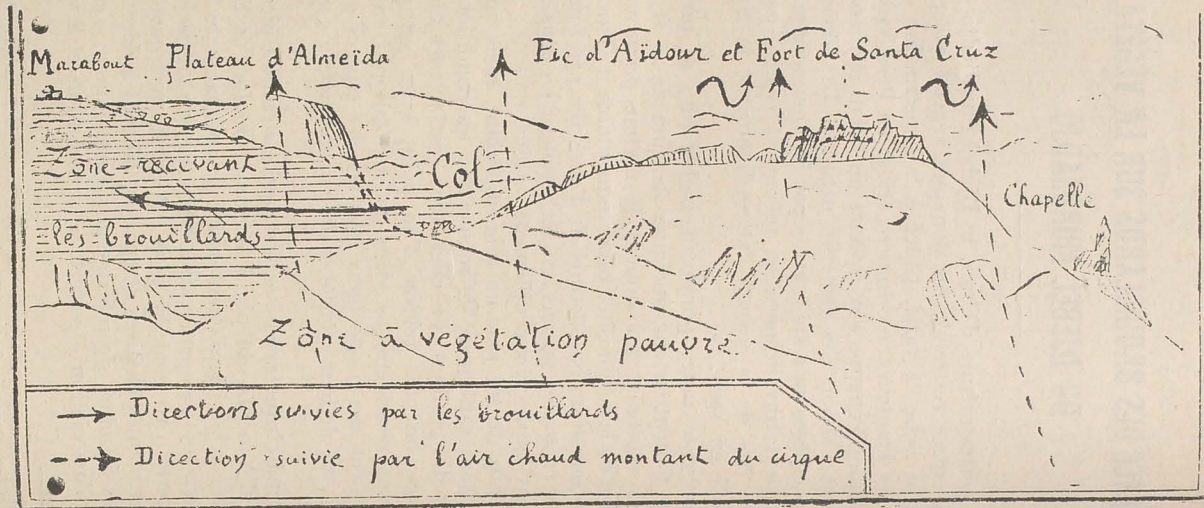 Marabout Plateau d'Almeïda Pic d'Aïdour et Fort de Santa Cruz
Zone recevant
les brouillards
Col
Chapelle
Zône à végétation pauvre
Directions suivies par les brouillards
Direction suivie par l'air chaud montant du cirque